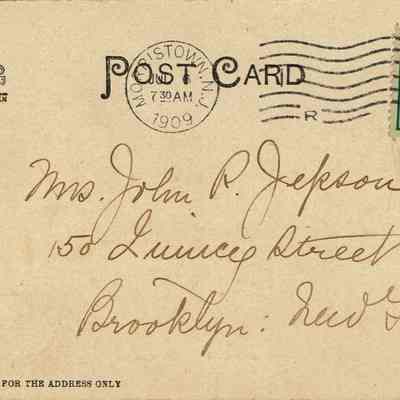 POST CARD
MORRISTOWN, N.J.
7 30 AM
1909
R
Mrs. John R. Jepson
150 Quincy Street
Brooklyn: New
FOR THE ADDRESS ONLY